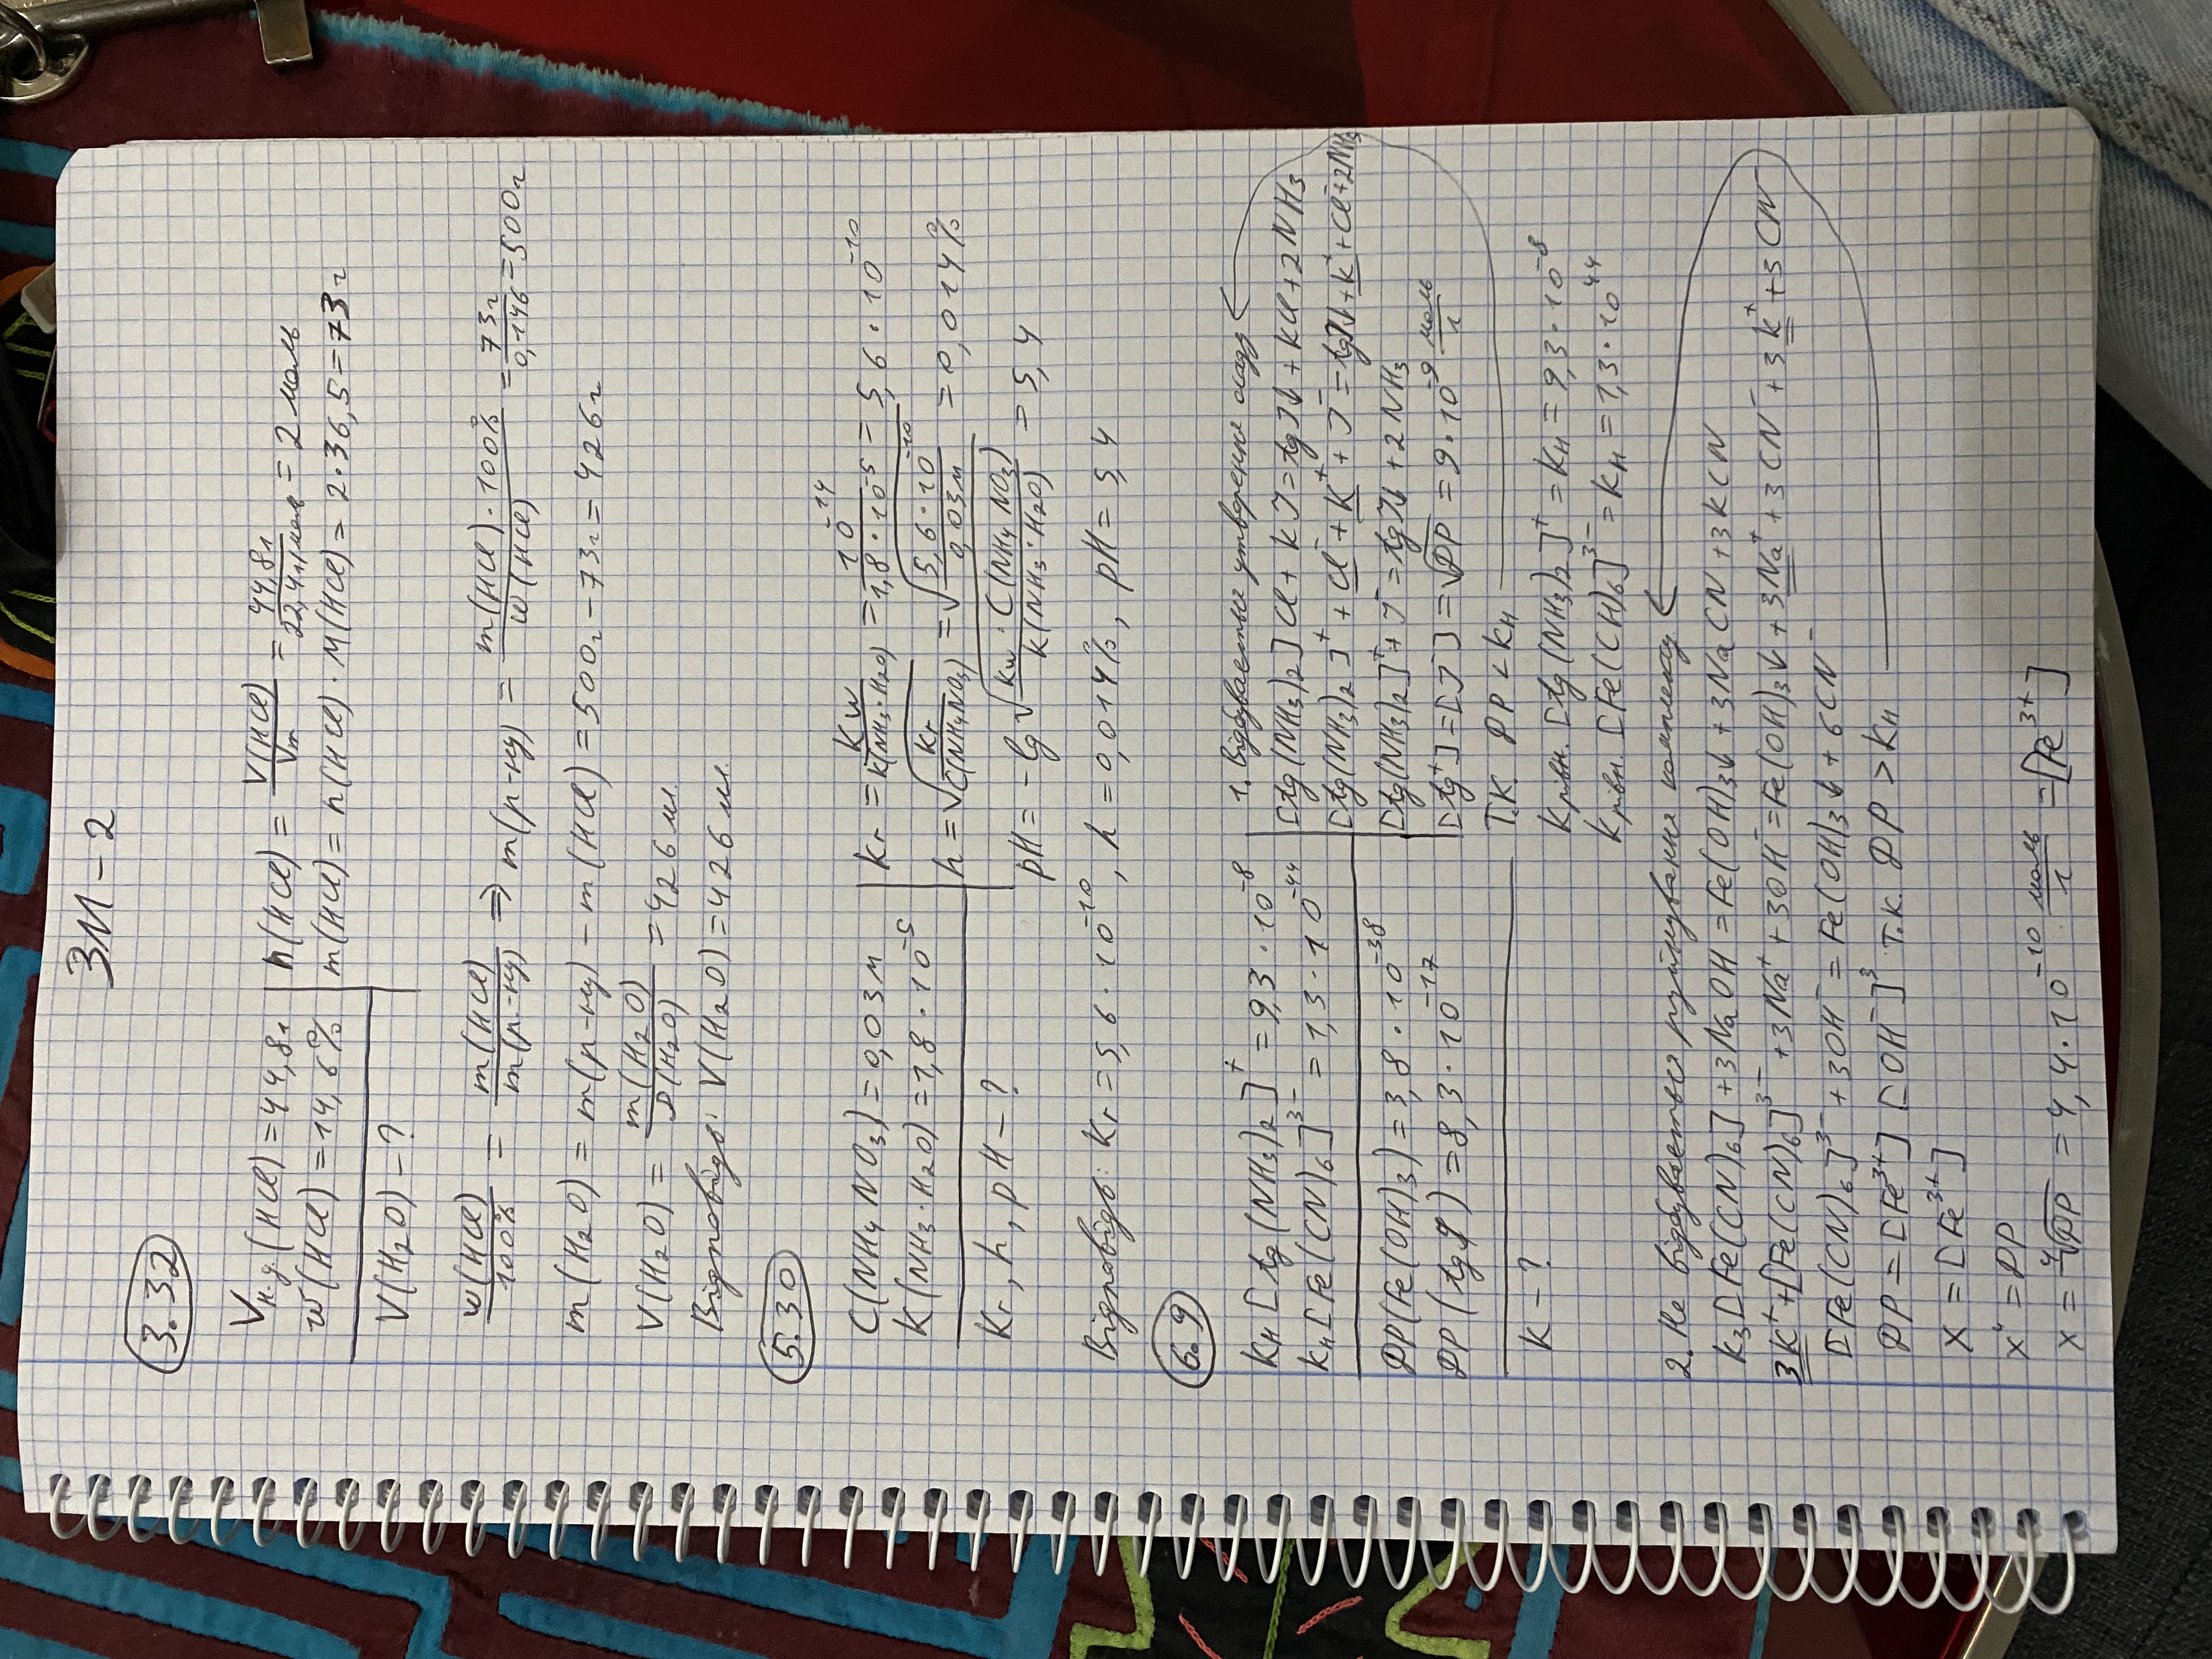 ЗМ-2
3.32
Vн.у.(HCl)=44,8л
w(HCl)=14,6%
V(H₂O)-?
n(HCl) = V(HCl)/Vm = 44,8л/22,4л/моль = 2 моль
m(HCl) = n(HCl)·M(HCl) = 2·36,5=73г
w(HCl)/100% = m(HCl)/m(р-ну) ⇒ m(р-ну) = m(HCl)·100%/w(HCl) = 73г/0,146 = 500г
m(H₂O) = m(р-ну) - m(HCl) = 500г - 73г = 426г
V(H₂O) = m(H₂O)/ρ(H₂O) = 426 мл.
Відповідь: V(H₂O)=426 мл.
5.30
C(NH₄NO₃)=0,03М
K(NH₃·H₂O)=1,8·10⁻⁵
Kг, h, pH-?
Kг = Kw/K(NH₃·H₂O) = 10⁻¹⁴/1,8·10⁻⁵ = 5,6·10⁻¹⁰
h = √Kг/C(NH₄NO₃) = √5,6·10⁻¹⁰/0,03М = 0,014%
pH = -lg√Kw·C(NH₄NO₃)/K(NH₃·H₂O) = 5,4
Відповідь: Kг=5,6·10⁻¹⁰, h=0,014%, pH=5,4
6.9
Kн[Ag(NH₃)₂]⁺ = 9,3·10⁻⁸
Kн[Fe(CN)₆]³⁻ = 1,3·10⁻⁴⁴
ДР(Fe(OH)₃)=3,8·10⁻³⁸
ДР(AgJ)=8,3·10⁻¹⁷
K-?
1. Відбувається утворення осаду
[Ag(NH₃)₂]Cl + KJ = AgJ↓ + KCl + 2NH₃
[Ag(NH₃)₂]⁺ + Cl⁻ + K⁺ + J⁻ = AgJ↓ + K⁺ + Cl⁻ + 2NH₃
[Ag(NH₃)₂]⁺ + J⁻ = AgJ↓ + 2NH₃
[Ag⁺]=[J⁻]=√ДР = 9·10⁻⁹ моль/л
Т.к. ДР < Kн
Kрівн.[Ag(NH₃)₂]⁺ = Kн = 9,3·10⁻⁸
Kрівн.[Fe(CN)₆]³⁻ = Kн = 1,3·10⁴⁴
2. Не відбувається руйнування комплексу
K₃[Fe(CN)₆] + 3NaOH = Fe(OH)₃↓ + 3NaCN + 3KCN
3K⁺ + [Fe(CN)₆]³⁻ + 3Na⁺ + 3OH⁻ = Fe(OH)₃↓ + 3Na⁺ + 3CN⁻ + 3K⁺ + 3CN⁻
[Fe(CN)₆]³⁻ + 3OH⁻ = Fe(OH)₃↓ + 6CN⁻
ДР = [Fe³⁺][OH⁻]³ Т.к. ДР > Kн
X = [Fe³⁺]
X⁴ = ДР
X = ⁴√ДР = 4,4·10⁻¹⁰ моль/л = [Fe³⁺]